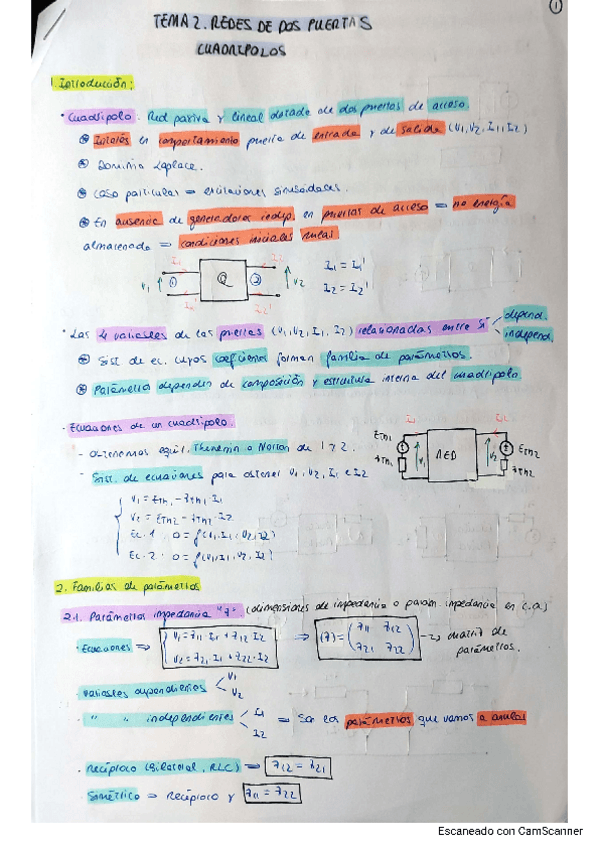 1
TEMA 2. REDES DE DOS PUERTAS
CUADRIPOLOS
1. Introducción:
· Cuadripolo: Red pasiva y lineal dotada de dos puertas de acceso.
Interés en comportamiento puerta de entrada y de salida (V1, V2, I1, I2)
Dominio Laplace.
Caso particular = excitaciones sinusoidales.
En ausencia de generadores indep. en puertas de acceso = no energía
almacenada = condiciones iniciales nulas
I1 I2
V1 1 Q 2 V2
I1' I2'
I1 = I1'
I2 = I2'
· Las 4 variables de las puertas (V1, V2, I1, I2) relacionadas entre sí
depend.
independ.
Sist. de ec. cuyos coeficientes forman familia de parámetros.
Parámetros dependen de composición y estructura interna del cuadripolo
· Ecuaciones de un cuadripolo.
- Obtenemos equiv. Thevenin o Norton de 1 y 2.
- Sist. de ecuaciones para obtener V1, V2, I1 e I2
V1 = ETH1 - ZTH1 I1
V2 = ETH2 - ZTH2 · I2
Ec. 1: 0 = f(V1, I1, V2, I2)
Ec. 2: 0 = f(V1, I1, V2, I2)
I1 I2
ETH1 V1 RED V2 ETH2
ZTH1 ZTH2
2. Familias de parámetros
2.1. Parámetros impedancia "Z". (dimensiones de impedancia o param impedancia en c.a)
· Ecuaciones ⇒ V1 = Z11 I1 + Z12 I2
V2 = Z21 I1 + Z22 · I2
⇒ (Z) = (Z11 Z12
Z21 Z22) → matriz de
parámetros.
· Variables dependientes V1
V2
· " " independientes I1
I2
= Son los parámetros que vamos a anular
· Recíproco (Bilateral, RLC) ⇒ Z12 = Z21
· Simétrico ⇒ Recíproco y Z11 = Z22
Escaneado con CamScanner